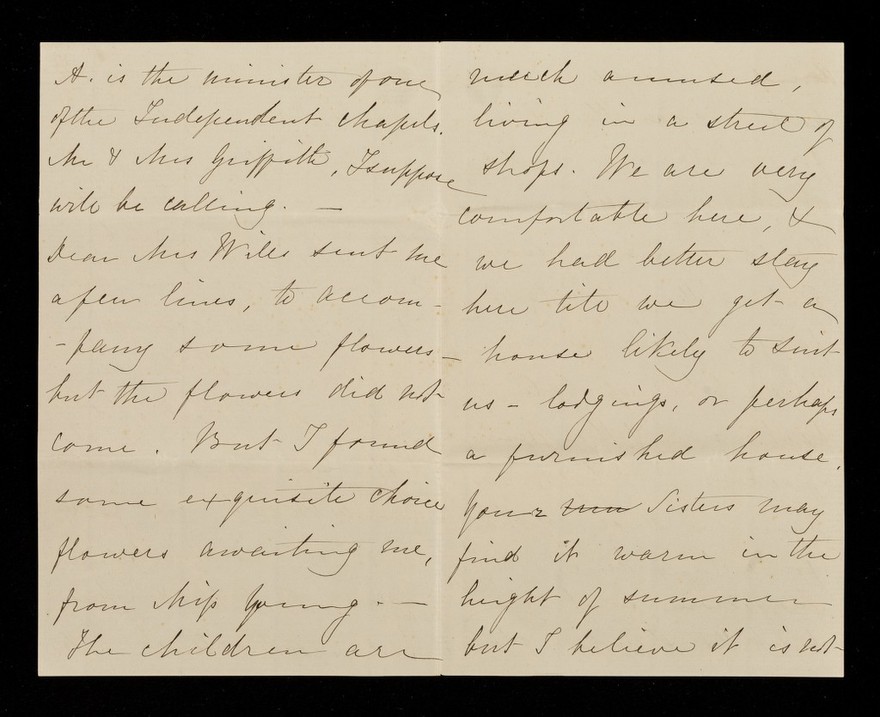 A. is the minister of one
of the Independent Chapels.
Mr & Mrs Griffith, I suppose
will be calling. —
Dear Mrs Wiles sent me
a few lines, to accom-
-pany some flowers—
but the flowers did not
come. But I found
some exquisite choice
flowers awaiting me,
from Miss Young. —
The children are
much amused,
living in a street of
shops. We are very
comfortable here, &
we had better stay
here till we get a
house likely to suit
us – lodgings, or perhaps
a furnished house.
Your Sisters may
find it warm in the
height of summer
but I believe it is not